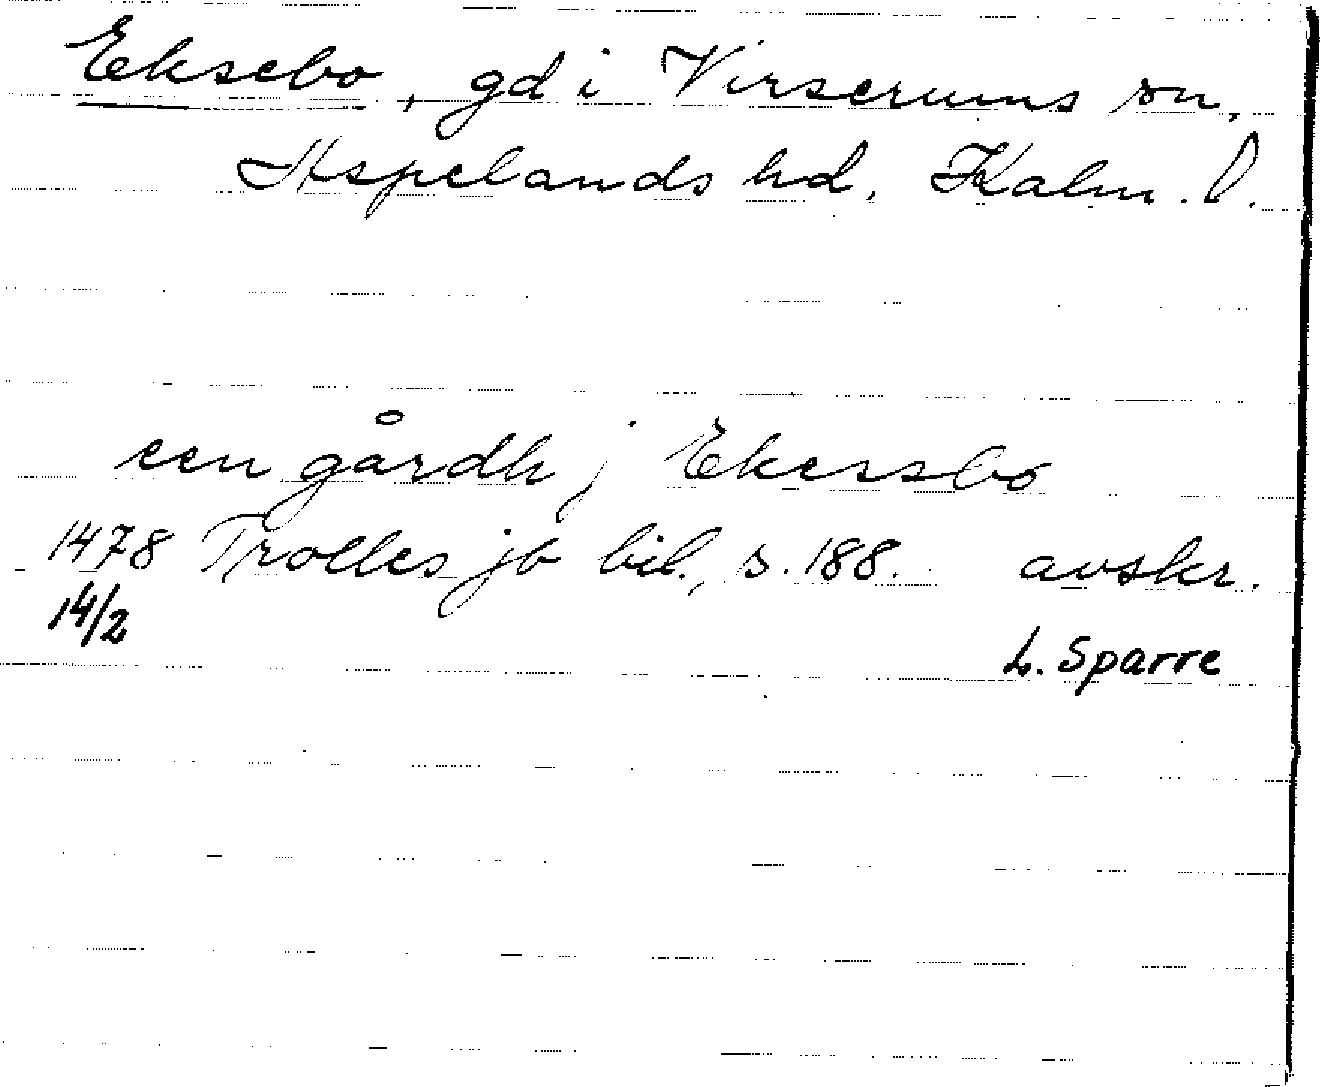 Eksebo, gd i Virserums sn,
Aspelands hd, Kalm. l.
een gårdh j Ekersbo
1478 Trolles jb bil., s. 188. avskr.
14/2
L. Sparre